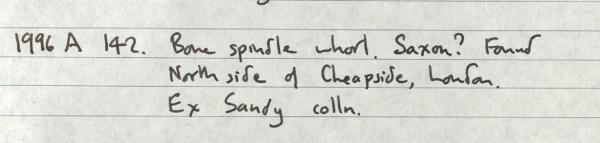 1996 A 142. Bone spindle whorl. Saxon? Found
North side of Cheapside, London.
Ex Sandy colln.